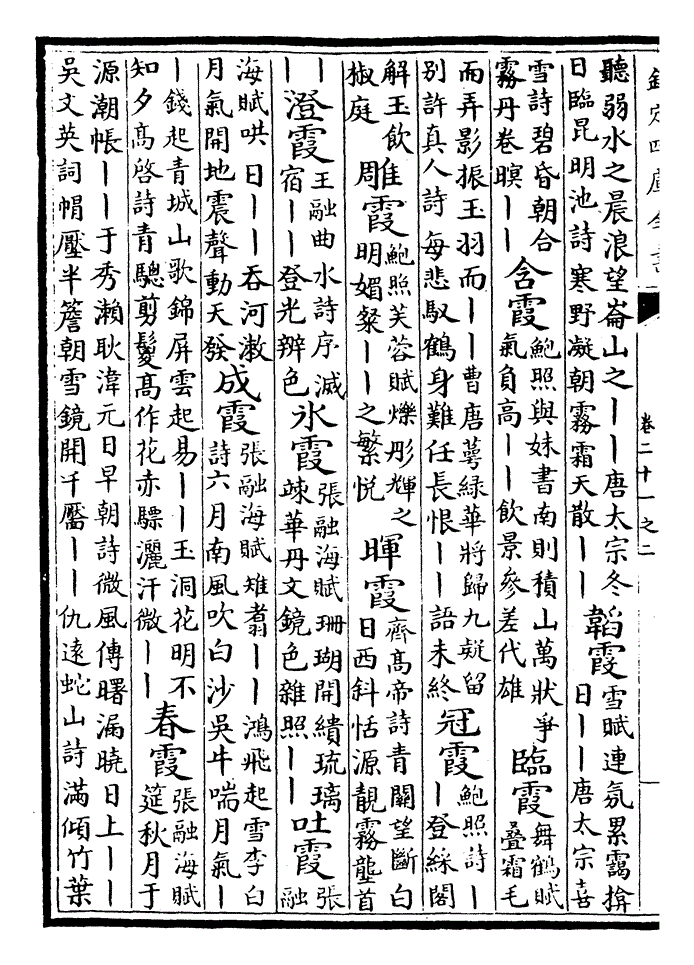 欽定四庫全書
卷二十一之二
聽弱水之晨浪望崙山之丨丨唐太宗冬
日臨昆明池詩寒野凝朝霧霜天散丨丨
韜霞
雪賦連氛累靄揜
日丨丨唐太宗喜
雪詩碧昏朝合
霧丹卷暝丨丨
含霞
鮑照與妹書南則積山萬狀爭
氣負高丨丨飲景參差代雄
臨霞
舞鶴賦
疊霜毛
而弄影振玉羽而丨丨曹唐萼緑華將歸九疑留
別許真人詩每悲馭鶴身難任長恨丨丨語未終
冠霞
鮑照詩丨
丨登綵閣
解玉飲
椒庭
雕霞
鮑照芙蓉賦爍彤輝之
明媚粲丨丨之繁悅
暉霞
齊髙帝詩青關望斷白
日西斜恬源靚霧壟首
丨
丨
澄霞
王融曲水詩序滅
宿丨丨登光辨色
氷霞
張融海賦珊瑚開繢琉璃
竦華丹文鏡色雜照丨丨
吐霞
張
融
海賦哄日丨丨吞河漱
月氣開地震聲動天發
成霞
張融海賦雉翥丨丨鴻飛起雪李白
詩六月南風吹白沙吳牛喘月氣丨
丨錢起青城山歌錦屏雲起易丨丨玉洞花明不
知夕髙啓詩青驄剪鬉髙作花赤驃灑汗微丨丨
春霞
張融海賦
筵秋月于
源潮帳丨丨于秀瀨耿湋元日早朝詩微風傳曙漏曉日上丨丨
吳文英詞帽壓半簷朝雪鏡開千靨丨丨仇逺蛇山詩滿傾竹葉